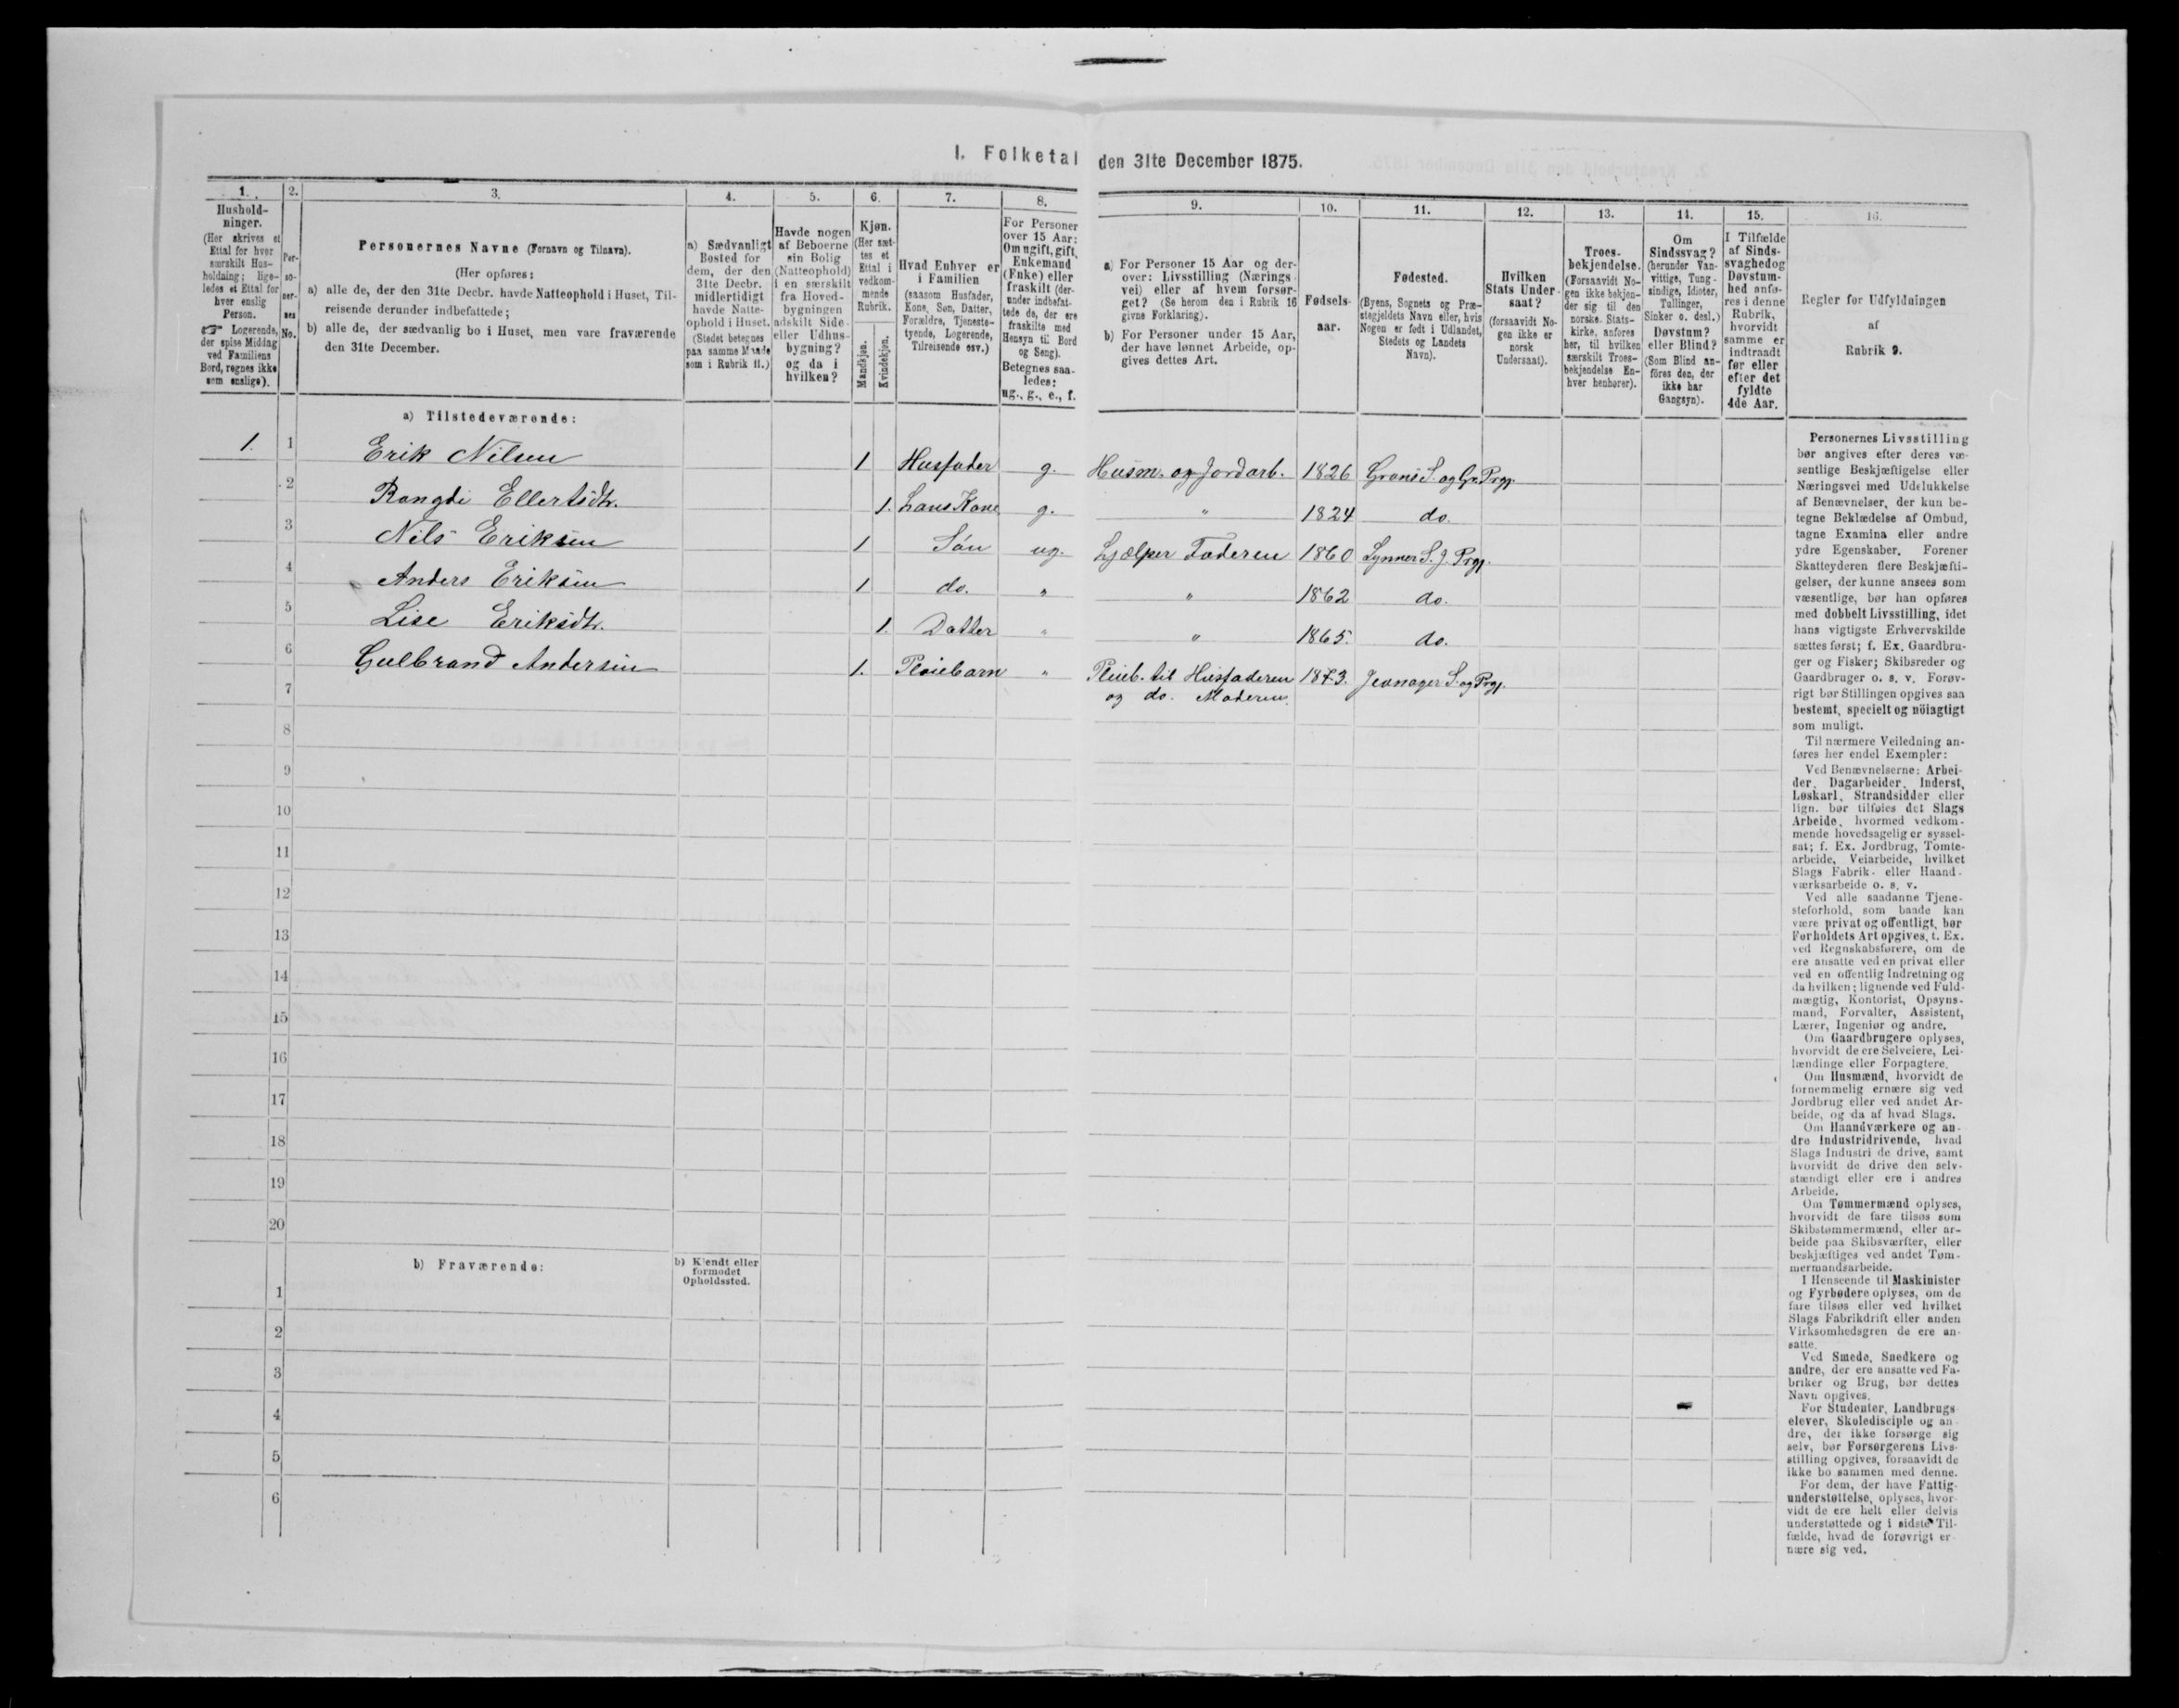 I. Folketal den 31te December 1875.
1. 2. 3. 4. 5. 6. 7. 8. 9. 10. 11. 12. 13. 14. 15. 16.
Hushold-
ninger.
(Her skrives et
Ettal for hver
særskilt Hus-
holdning; lige-
ledes et Ettal for
hver enslig
Person.
☞ Logerende,
der spise Middag
ved Familiens
Bord, regnes ikke
som enslige).
Per-
so-
ner-
nes
No.
Personernes Navne (Fornavn og Tilnavn).
(Her opføres:
a) alle de, der den 31te Decbr. havde Natteophold i Huset, Til-
reisende derunder indbefattede;
b) alle de, der sædvanlig bo i Huset, men vare fraværende
den 31te December.
a) Sædvanligt
Bosted for
dem, der den
31te Decbr.
midlertidigt
havde Natte-
ophold i Huset.
(Stedet betegnes
paa samme Maade
som i Rubrik 11.)
Havde nogen
af Beboerne
sin Bolig
(Natteophold)
i en særskilt
fra Hoved-
bygningen
adskilt Side-
eller Udhus-
bygning?
og da i
hvilken?
Kjøn.
(Her sæt-
tes et
Ettal i
vedkom-
mende
Rubrik.
Mandkjøn.
Kvindekjøn.
Hvad Enhver er
i Familien
(saasom Husfader,
Kone, Søn, Datter,
Forældre, Tjeneste-
tyende, Logerende,
Tilreisende osv.)
For Personer
over 15 Aar:
Om ugift, gift,
Enkemand
(Enke) eller
fraskilt (der-
under indbefat-
tede de, der ere
fraskilte med
Hensyn til Bord
og Seng).
Betegnes saa-
ledes:
ug., g., e., f.
a) For Personer 15 Aar og der-
over: Livsstilling (Nærings-
vei) eller af hvem forsør-
get? (Se herom den i Rubrik 16
givne Forklaring).
b) For Personer under 15 Aar,
der have lønnet Arbeide, op-
gives dettes Art.
Fødsels-
aar.
Fødested.
(Byens, Sognets og Præ-
stegjeldets Navn eller, hvis
Nogen er født i Udlandet,
Stedets og Landets
Navn).
Hvilken
Stats Under-
saat?
(forsaavidt No-
gen ikke er
norsk
Undersaat).
Troes-
bekjendelse.
(Forsaavidt No-
gen ikke bekjen-
der sig til den
norske Stats-
kirke, anføres
her, til hvilken
særskilt Troes-
bekjendelse En-
hver henhører).
Om
Sindssvag?
(herunder Van-
vittige, Tung-
sindige, Idioter,
Tullinger,
Sinker o. desl.)
Døvstum?
eller Blind?
(Som Blind an-
føres den, der
ikke har
Gangsyn).
I Tilfælde
af Sinds-
svaghed og
Døvstum-
hed anfø-
res i denne
Rubrik,
hvorvidt
samme er
indtraadt
før eller
efter det
fyldte
4de Aar.
Regler for Udfyldningen
af
Rubrik 9.
a) Tilstedeværende:
1. 1 Erik Nilsen 1 Husfader g. Husm. og Jordarb. 1826 Grans S. og Gr. Prgj.
2 Rangdi Ellertsdtr. 1. hans Kone g. " 1824 do.
3 Nils Eriksen 1 Søn ug. hjælper Faderen 1860 Lynner S. J. Prgj.
4 Anders Eriksen 1 do. " " 1862 do.
5 Lise Eriksdtr. 1. Datter " " 1865. do.
6 Gulbrand Andersen 1. Pleiebarn " Pleieb. til Husfaderen 1873. Jevnager S. og Prgj.
7 og do. Moderen.
8
9
10
11
12
13
14
15
16
17
18
19
20
b) Fraværende:
b) Kjendt eller
formodet
Opholdssted.
1
2
3
4
5
6
Personernes Livsstilling
bør angives efter deres væ-
sentlige Beskjæftigelse eller
Næringsvei med Udelukkelse
af Benævnelser, der kun be-
tegne Beklædelse af Ombud,
tagne Examina eller andre
ydre Egenskaber. Forener
Skatteyderen flere Beskjæfti-
gelser, der kunne ansees som
væsentlige, bør han opføres
med dobbelt Livsstilling, idet
hans vigtigste Erhvervskilde
sættes først; f. Ex. Gaardbru-
ger og Fisker; Skibsreder og
Gaardbruger o. s. v. Forøv-
rigt bør Stillingen opgives saa
bestemt, specielt og nöiagtigt
som muligt.
Til nærmere Veiledning an-
føres her endel Exempler:
Ved Benævnelserne: Arbei-
der, Dagarbeider, Inderst,
Løskarl, Strandsidder eller
lign. bør tilføies det Slags
Arbeide, hvormed vedkom-
mende hovedsagelig er syssel-
sat; f. Ex. Jordbrug, Tomte-
arbeide, Veiarbeide, hvilket
Slags Fabrik- eller Haand-
værksarbeide o. s. v.
Ved alle saadanne Tjene-
steforhold, som baade kan
være privat og offentligt, bør
Forholdets Art opgives, t. Ex.
ved Regnskabsførere, om de
ere ansatte ved en privat eller
ved en offentlig Indretning og
da hvilken; lignende ved Fuld-
mægtig, Kontorist, Opsyns-
mand, Forvalter, Assistent,
Lærer, Ingeniør og andre.
Om Gaardbrugere oplyses,
hvorvidt de ere Selveiere, Lei-
lændinge eller Forpagtere.
Om Husmænd, hvorvidt de
fornemmelig ernære sig ved
Jordbrug eller ved andet Ar-
beide, og da af hvad Slags.
Om Haandværkere og an-
dre Industridrivende, hvad
Slags Industri de drive, samt
hvorvidt de drive den selv-
stændigt eller ere i andres
Arbeide.
Om Tømmermænd oplyses,
hvorvidt de fare tilsøs som
Skibstømmermænd, eller ar-
beide paa Skibsværfter, eller
beskjæftiges ved andet Tøm-
mermandsarbeide.
I Henseende til Maskinister
og Fyrbødere oplyses, om de
fare tilsøs eller ved hvilket
Slags Fabrikdrift eller anden
Virksomhedsgren de ere an-
satte.
Ved Smede, Snedkere og
andre, der ere ansatte ved Fa-
briker og Brug, bør dettes
Navn opgives.
For Studenter, Landbrugs-
elever, Skoledisciple og an-
dre, der ikke forsørge sig
selv, bør Forsørgerens Livs-
stilling opgives, forsaavidt de
ikke bo sammen med denne.
For dem, der have Fattig-
understøttelse, oplyses, hvor-
vidt de ere helt eller delvis
understøttede og i sidste Til-
fælde, hvad de forøvrigt er-
nære sig ved.